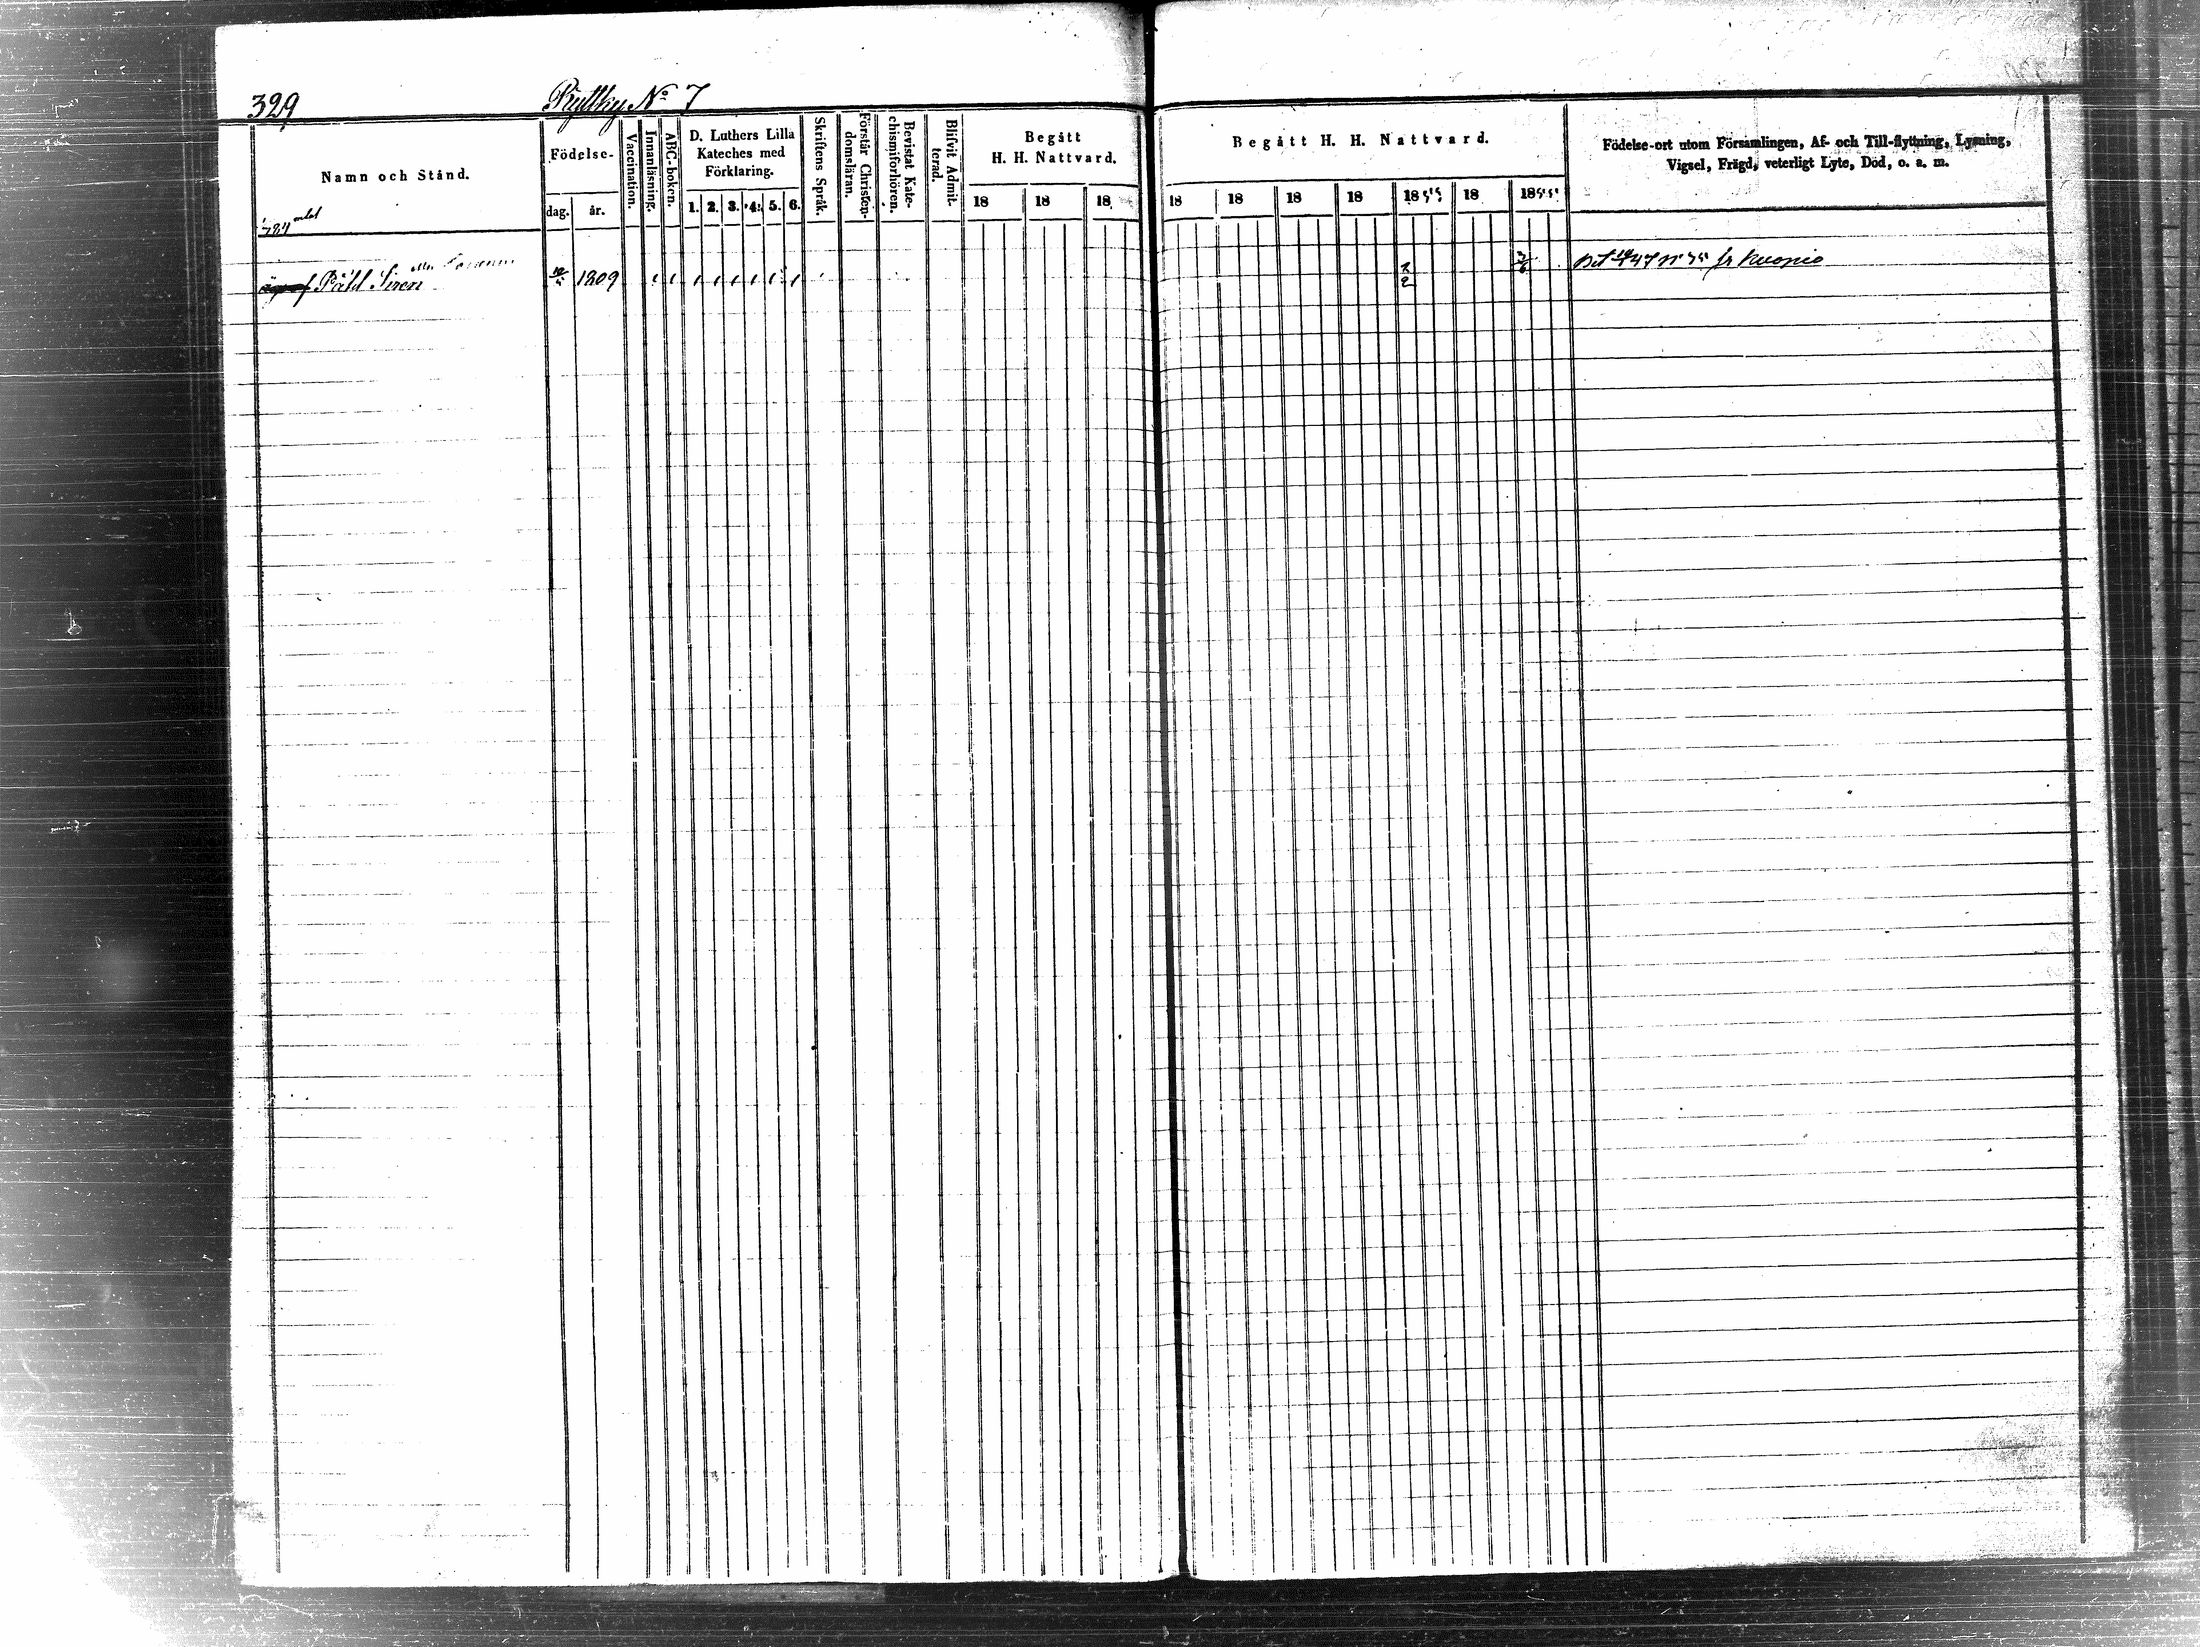 329
No 7
Namn och Stånd.
Födelse-
dag. år.
Vaccination.
Innanläsning.
ABC-boken.
D. Luthers Lilla
Kateches med
Förklaring.
1. 2. 3. 4. 5. 6.
Skriftens Språk.
Förstår Christen-
domsläran.
Bevistat Kate-
chismiförhören.
Blifvit Admit-
terad.
Begått
H. H. Nattvard.
18 18 18
Begått H. H. Nattvard.
18 18 18 18 1855 18 1855
Födelse-ort utom Församlingen, Af- och Till-flyttning, Lysning,
Vigsel, Frägd, veterligt Lyte, Död, o. a. m.
Påhl Siren
1809
fr Kuopio